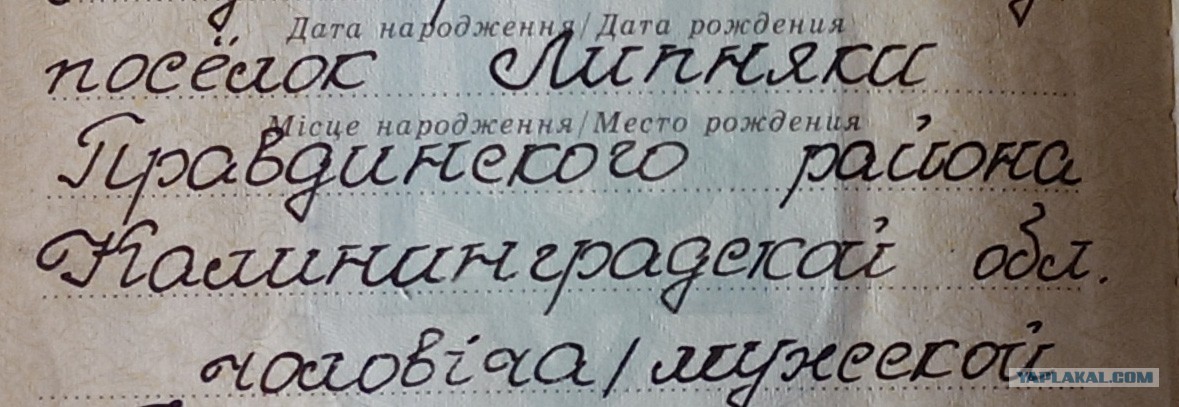 Дата народження/Дата рождения
посёлок Липняки
Місце народження/Место рождения
Правдинского района
Калининградской обл.
чоловіча/мужской
YAPLAKAL.COM